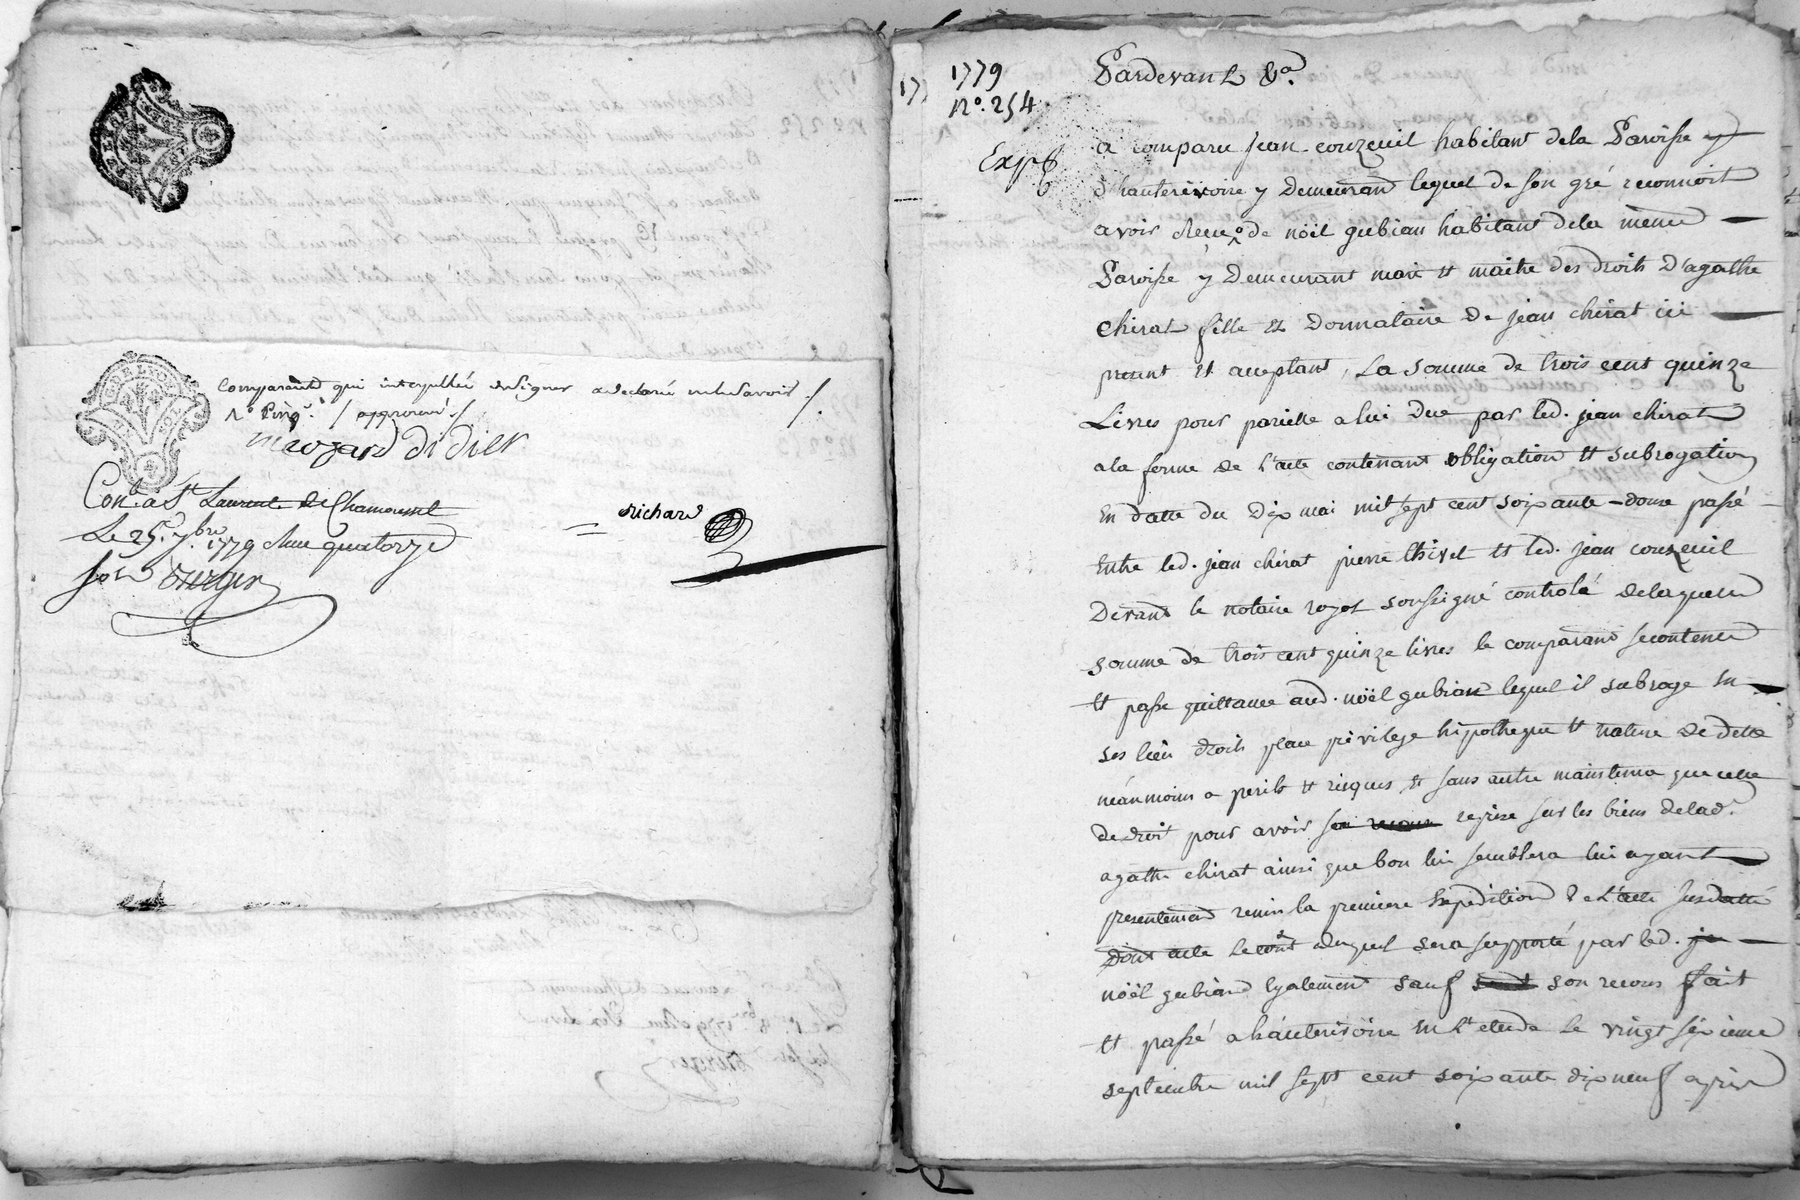 comparants qui interpellés de signer a declaré ne le savoir /.
/ approuvé /
Con.lé a St. Laurent de Chamousset
Le 25. 7bre 1779 quatorze
sols
richard
1779
N.o 254
Exp.é
Pardevant &a.
a comparu jean couzeuil habitant dela Paroisse
d'hauterivoire y Demeurant lequel de son gré reconnoit
avoir de nöel gubian habitant dela meme
Paroisse y Demeurant mari et maitre des droits D'agathe
chirat fille et Donnataire De jean chirat ici
present et acceptant, La somme de trois cent quinze
Livres pour pareille a lui Due par led. jean chirat
a la forme de L'acte contenant obligation et subrogation
En datte du Dix mai mil sept cent soixante-douze passé
Entre led. jean chirat pierre thivel et led. jean couzeuil
Devant le notaire royal soussigné controlé delaquelle
somme de trois cent quinze livres le comparant se contente
et passe quittance aud. nöel gubian lequel il subroge en
ses lieu droits place privilege hipotheque et nature de dette
néanmoins a perils et risques et sans autre maintenue que celle
de droit pour avoir reprise sur les biens delad.
agathe chirat ainsi que bon lui semblera lui ayant
presentement remis la premiere Expedition de L'acte susdatté
Dont acte le coût duquel sera supporté par led.
nöel gubian Egalement sauf son recours fait
et passé a hauterivoire En L'etude Le vingt sixieme
septembre mil sept cent soixante dix neuf après